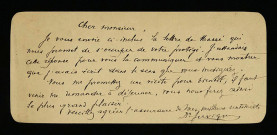 Cher monsieur,
Je vous envoie ci inclus la lettre de
me promet de s'occuper de votre protégé. J'attendais
cette réponse pour vous la communiquer et vous montrer
que j'avais dans le sens que vous
Vous me promettez une visite pour bientôt, il faut
venir me demander à déjeuner, vous nous ferez
le plus grand plaisir.
Veuillez agréer l'assurance de mes meilleurs sentiments